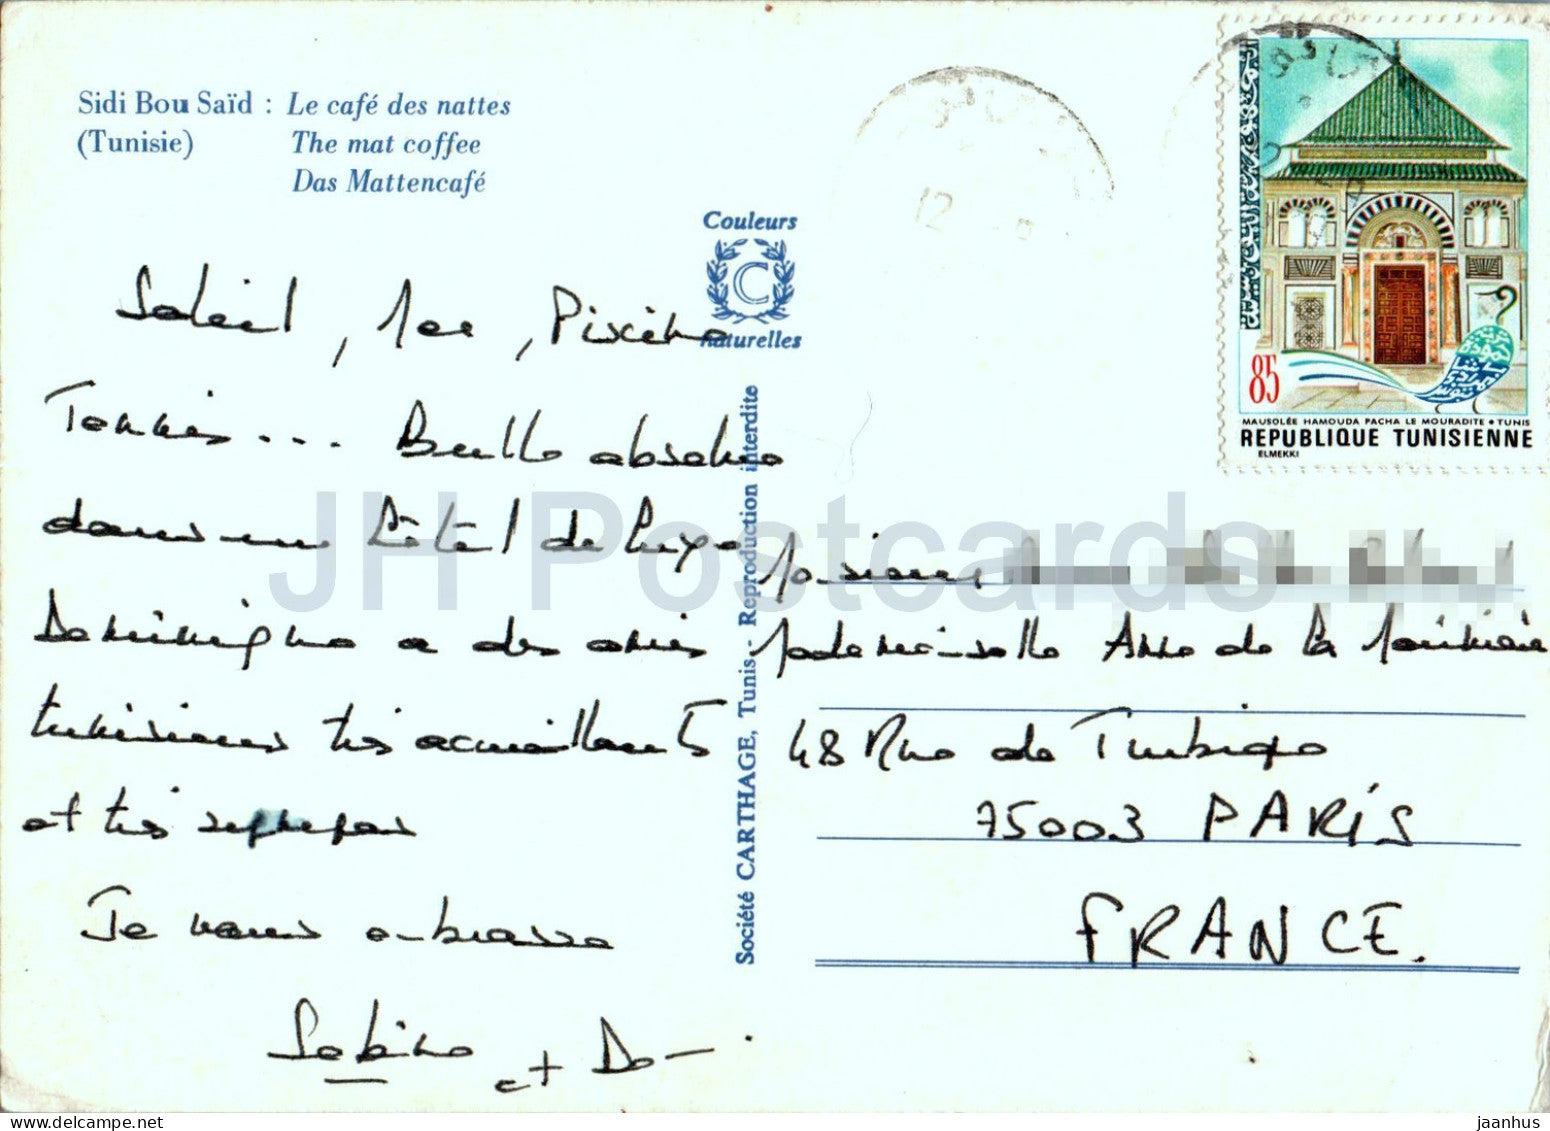 Sidi Bou Saïd : Le café des nattes
(Tunisie) The mat coffee
Das Mattencafé
Couleurs
C
naturelles
Soleil, Mer, Piscine
Tennis... Bulle absolue
dans un Hôtel de Luxe
Dominique a des amis
tunisiens très accueillants
et très
Je vous embrasse
Sabine et Do
Société CARTHAGE, Tunis - Reproduction interdite
12
85
MAUSOLÉE HAMOUDA PACHA LE MOURADITE • TUNIS
REPUBLIQUE TUNISIENNE
ELMEKKI
Monsieur
Mademoiselle Anne de la
48 Rue de Turbigo
75003 PARIS
FRANCE.
JH Postcards
jaanhus